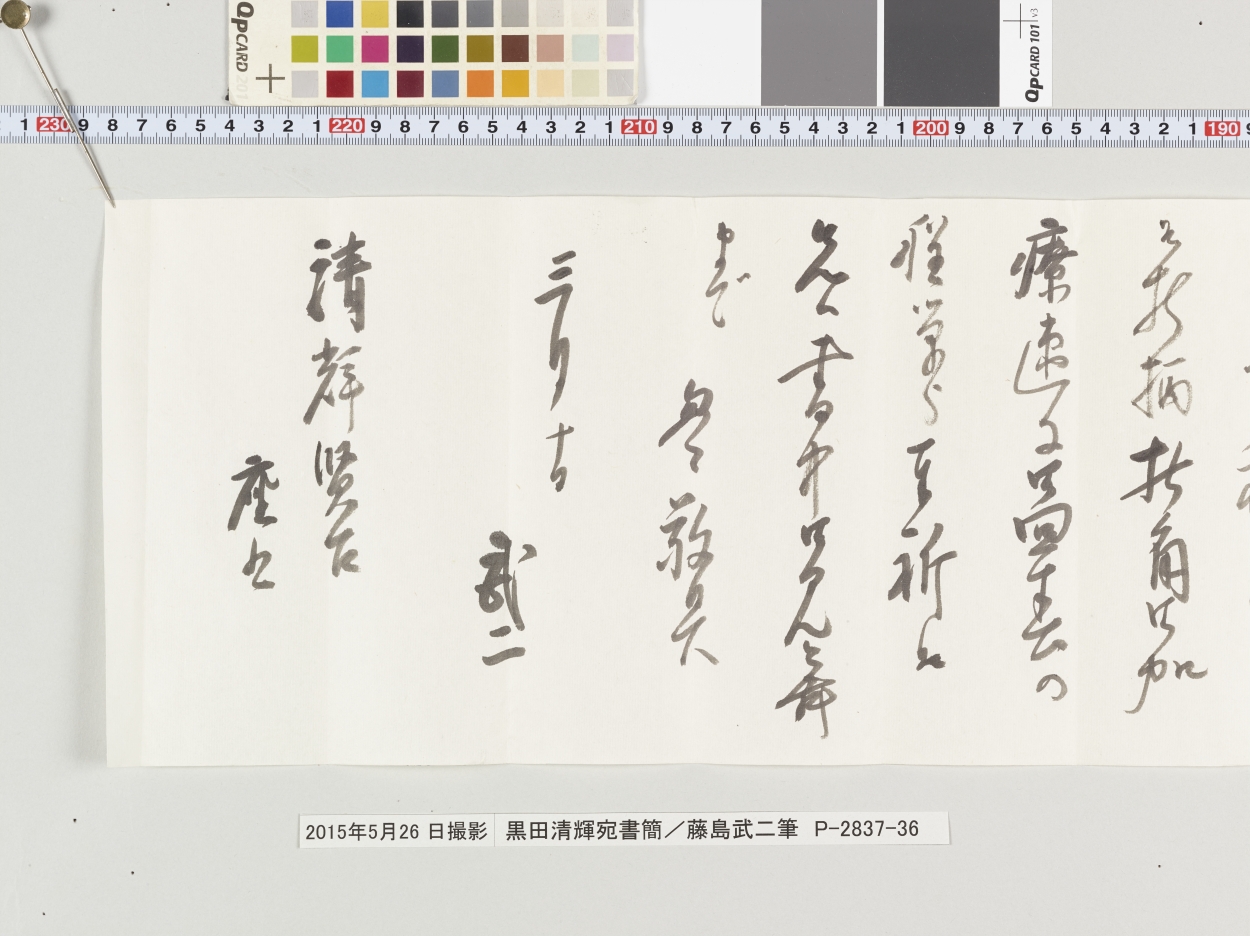 QPCARD 201
QPCARD 101 v3
1 230 9 8 7 6 5 4 3 2 1 220 9 8 7 6 5 4 3 2 1 210 9 8 7 6 5 4 3 2 1 200 9 8 7 6 5 4 3 2 1 190 9
折柄折角御加
療速に御回春の
程専ら祈候
先は書中御見舞
まで
敬具
三月
武二
清輝賢台
座
2015年5月26日撮影 黒田清輝宛書簡/藤島武二筆 P-2837-36